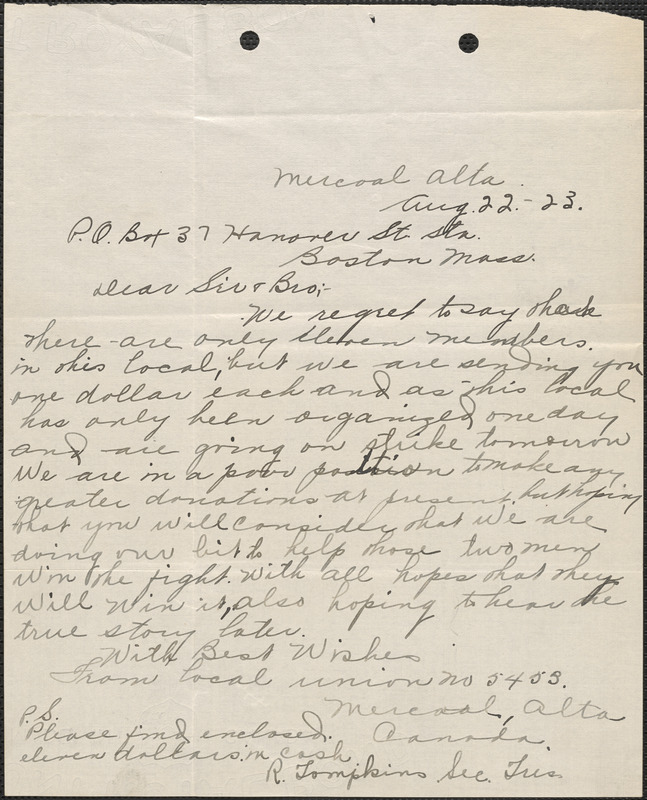 Mercoal Alta.
Aug. 22.-23.
P.O. Box 37 Hanover St. Sta.
Boston Mass.
Dear Sir & Bro;-
We regret to say that
there are only eleven members.
in this local, but we are sending you
one dollar each and as this local
has only been organized one day
and are going on strike tomorrow
We are in a poor position to make any
greater donations at present, but hoping
that you will consider that we are
doing our bit to help those two men
Win the fight. With all hopes that they
Will Win it, also hoping to hear the
true story later.
With Best Wishes
From local union no 5453.
Mercoal, Alta
Canada.
P.S.
Please find enclosed.
eleven dollars in cash
R. Tompkins Sec. Tres